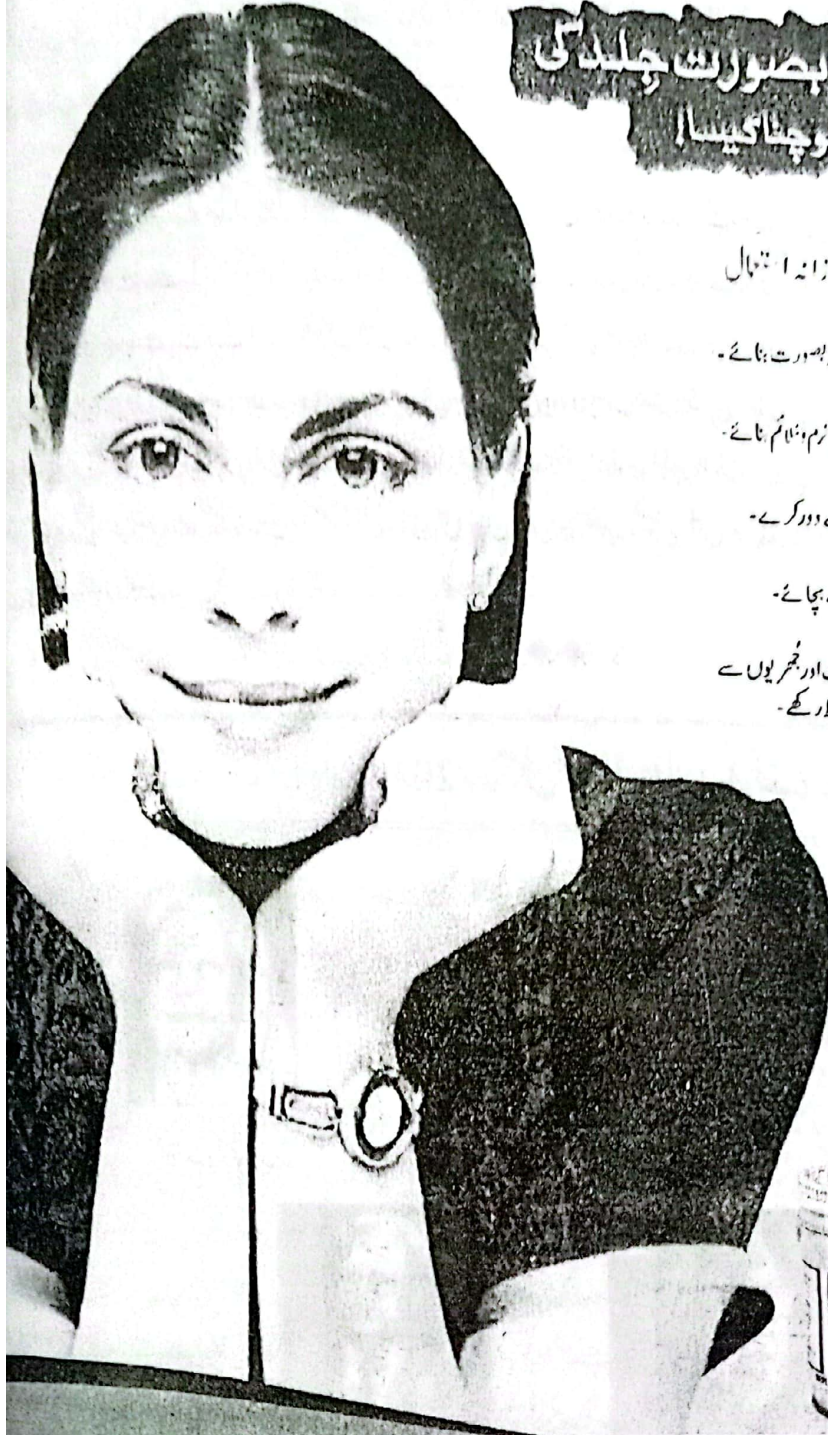 بصورت جلد کی
وچنا کیسا!
زانہ استعمال
بصورت بنائے۔
نرم و ملائم بنائے۔
دور کرے۔
بچائے۔
اور جھریوں سے
رکھے۔